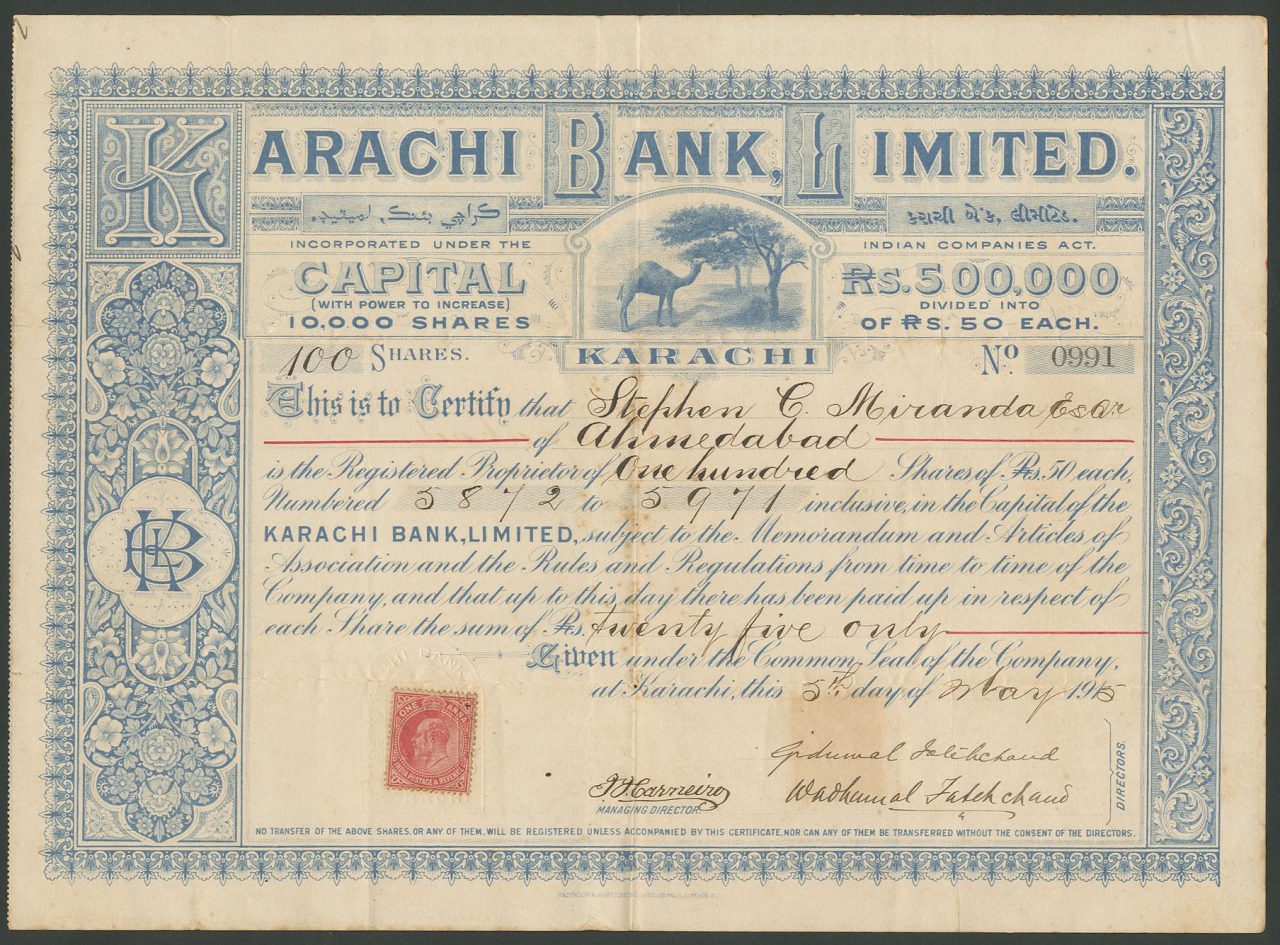 KARACHI BANK, LIMITED.
ڪراچي بئنڪ لميٽيڊ
કરાચી બેંક, લીમીટેડ.
INCORPORATED UNDER THE INDIAN COMPANIES ACT.
CAPITAL Rs. 500,000
(WITH POWER TO INCREASE) DIVIDED INTO
10,000 SHARES OF Rs. 50 EACH.
KARACHI
100 SHARES. No. 0991
This is to Certify that Stephen C. Miranda Esqr
of Ahmedabad
is the Registered Proprietor of One hundred Shares of Rs. 50 each,
Numbered 5872 to 5971 inclusive, in the Capital of the
KARACHI BANK, LIMITED, subject to the Memorandum and Articles of
Association and the Rules and Regulations from time to time of the
Company, and that up to this day there has been paid up in respect of
each Share the sum of Rs. twenty five only
Given under the Common Seal of the Company,
at Karachi, this 5th day of May 1915
ONE ANNA
INDIA POSTAGE & REVENUE
Gidumal Fatehchand
Wadhumal Fatehchand
DIRECTORS.
Carneiro
MANAGING DIRECTOR.
NO TRANSFER OF THE ABOVE SHARES, OR ANY OF THEM, WILL BE REGISTERED UNLESS ACCOMPANIED BY THIS CERTIFICATE, NOR CAN ANY OF THEM BE TRANSFERRED WITHOUT THE CONSENT OF THE DIRECTORS.